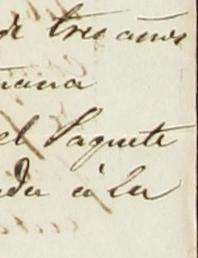 de tres años
ñana
el Paquete
à la